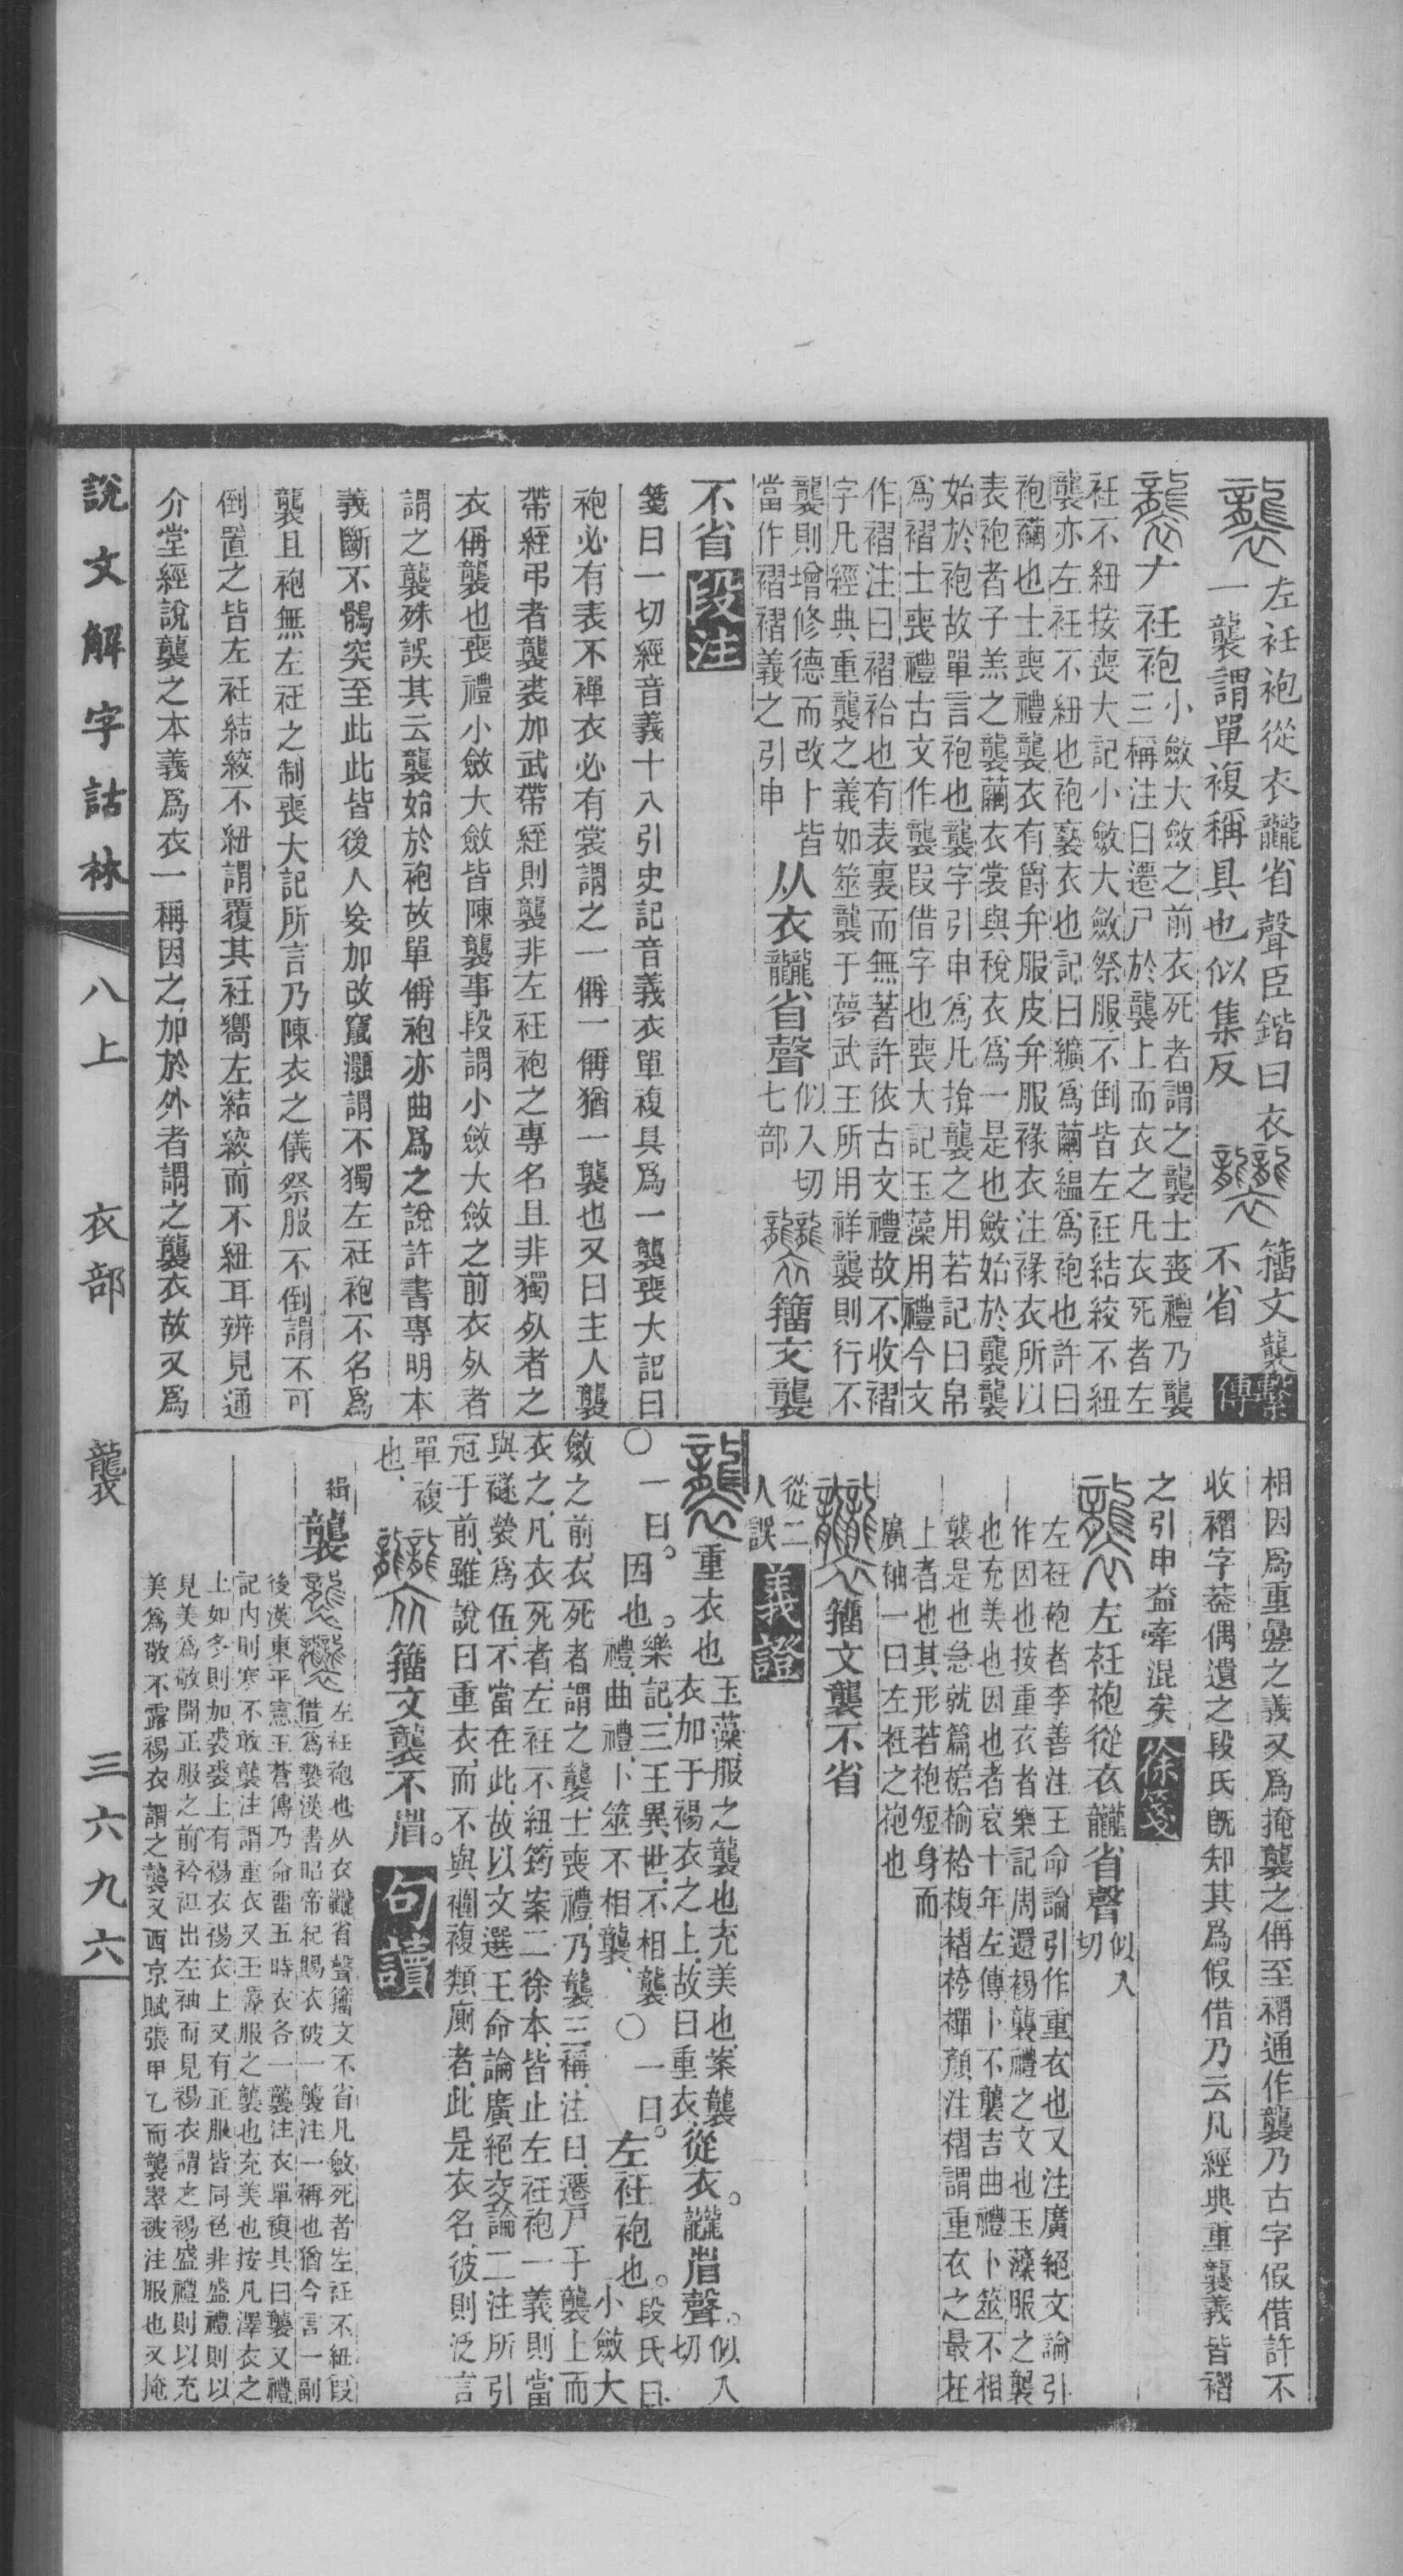 左衽袍從衣龖省聲臣鍇曰衣
一襲謂單複稱具也似集反
籒文襲
不省
繫傳
𠂇衽袍
小斂大斂之前衣死者謂之襲士喪禮乃襲
三稱注曰遷尸於襲上而衣之凡衣死者左
衽不紐按喪大記小斂大斂祭服不倒皆左衽結絞不紐
襲亦左衽不紐也袍褻衣也記曰纊爲繭縕爲袍也許曰
袍襺也士喪禮襲衣有爵弁服皮弁服褖衣注褖衣所以
表袍者子羔之襲繭衣裳與稅衣爲一是也斂始於襲襲
始於袍故單言袍也襲字引申爲凡揜襲之用若記曰帛
爲褶士喪禮古文作襲叚借字也喪大記玉藻用禮今文
作褶注曰褶袷也有表裏而無著許依古文禮故不收褶
字凡經典重襲之義如筮襲于夢武王所用祥襲則行不
襲則增修德而改卜皆
當作褶褶義之引申
从衣龖省聲
似入切
七部
籒文襲
不省
段注
箋曰一切經音義十八引史記音義衣單複具爲一襲喪大記曰
袍必有表不襌衣必有裳謂之一偁一偁猶一襲也又曰主人襲
帶絰弔者襲裘加武帶絰則襲非左衽袍之專名且非獨𣦸者之
衣偁襲也喪禮小斂大斂皆陳襲事段謂小斂大斂之前衣𣦸者
謂之襲殊誤其云襲始於袍故單偁袍亦曲爲之說許書專明本
義斷不鶻突至此此皆後人妄加改竄灝謂不獨左衽袍不名爲
襲且袍無左衽之制喪大記所言乃陳衣之儀祭服不倒謂不可
倒置之皆左衽結絞不紐謂覆其衽嚮左結絞而不紐耳辨見通
介堂經說襲之本義爲衣一稱因之加於外者謂之襲衣故又爲
相因爲重疊之義又爲掩襲之偁至褶通作襲乃古字假借許不
收褶字葢偶遺之段氏旣知其爲假借乃云凡經典重襲義皆褶
之引申益牽混矣
徐箋
左衽袍從衣龖省聲
似入
切
左衽袍者李善注王命論引作重衣也又注廣絕交論引
作因也按重衣者樂記周還裼襲禮之文也玉藻服之襲
也充美也因也者哀十年左傳卜不襲吉曲禮卜筮不相
襲是也急就篇襜褕袷複褶袴襌顏注褶謂重衣之最在
上者也其形若袍短身而
廣袖一曰左衽之袍也
籒文襲不省
從二
人誤
義證
重衣也
玉藻服之襲也充美也案襲
衣加于裼衣之上故曰重衣
從衣龖省聲
似入
切
○一曰因也
樂記三王異世不相襲
禮曲禮卜筮不相襲
○一曰左衽袍也
段氏曰
小斂大
斂之前衣死者謂之襲士喪禮乃襲三稱注曰遷尸于襲上而
衣之凡衣死者左衽不紐筠案二徐本皆止左衽袍一義則當
與襚褮爲伍不當在此故以文選王命論廣絕交論二注所引
冠于前雖說曰重衣而不與襺複類廁者此是衣名彼則泛言
單複
也
籒文襲不省
句讀
緝
襲
左衽袍也从衣龖省聲籒文不省凡斂死者左衽不紐叚
借爲褺漢書昭帝紀賜衣被一襲注一稱也猶今言一副
後漢東平憲王蒼傳乃命畱五時衣各一襲注衣單複具曰襲又禮
記内則寒不敢襲注謂重衣又玉藻服之襲也充美也按凡澤衣之
上如冬則加裘裘上有裼衣裼衣上又有正服皆同色非盛禮則以
見美爲敬開正服之前衿袒出左袖而見裼衣謂之裼盛禮則以充
美爲敬不露裼衣謂之襲又西京賦張甲乙而襲翠被注服也又掩
說文解字詁林
八上　衣部　襲
三六九六